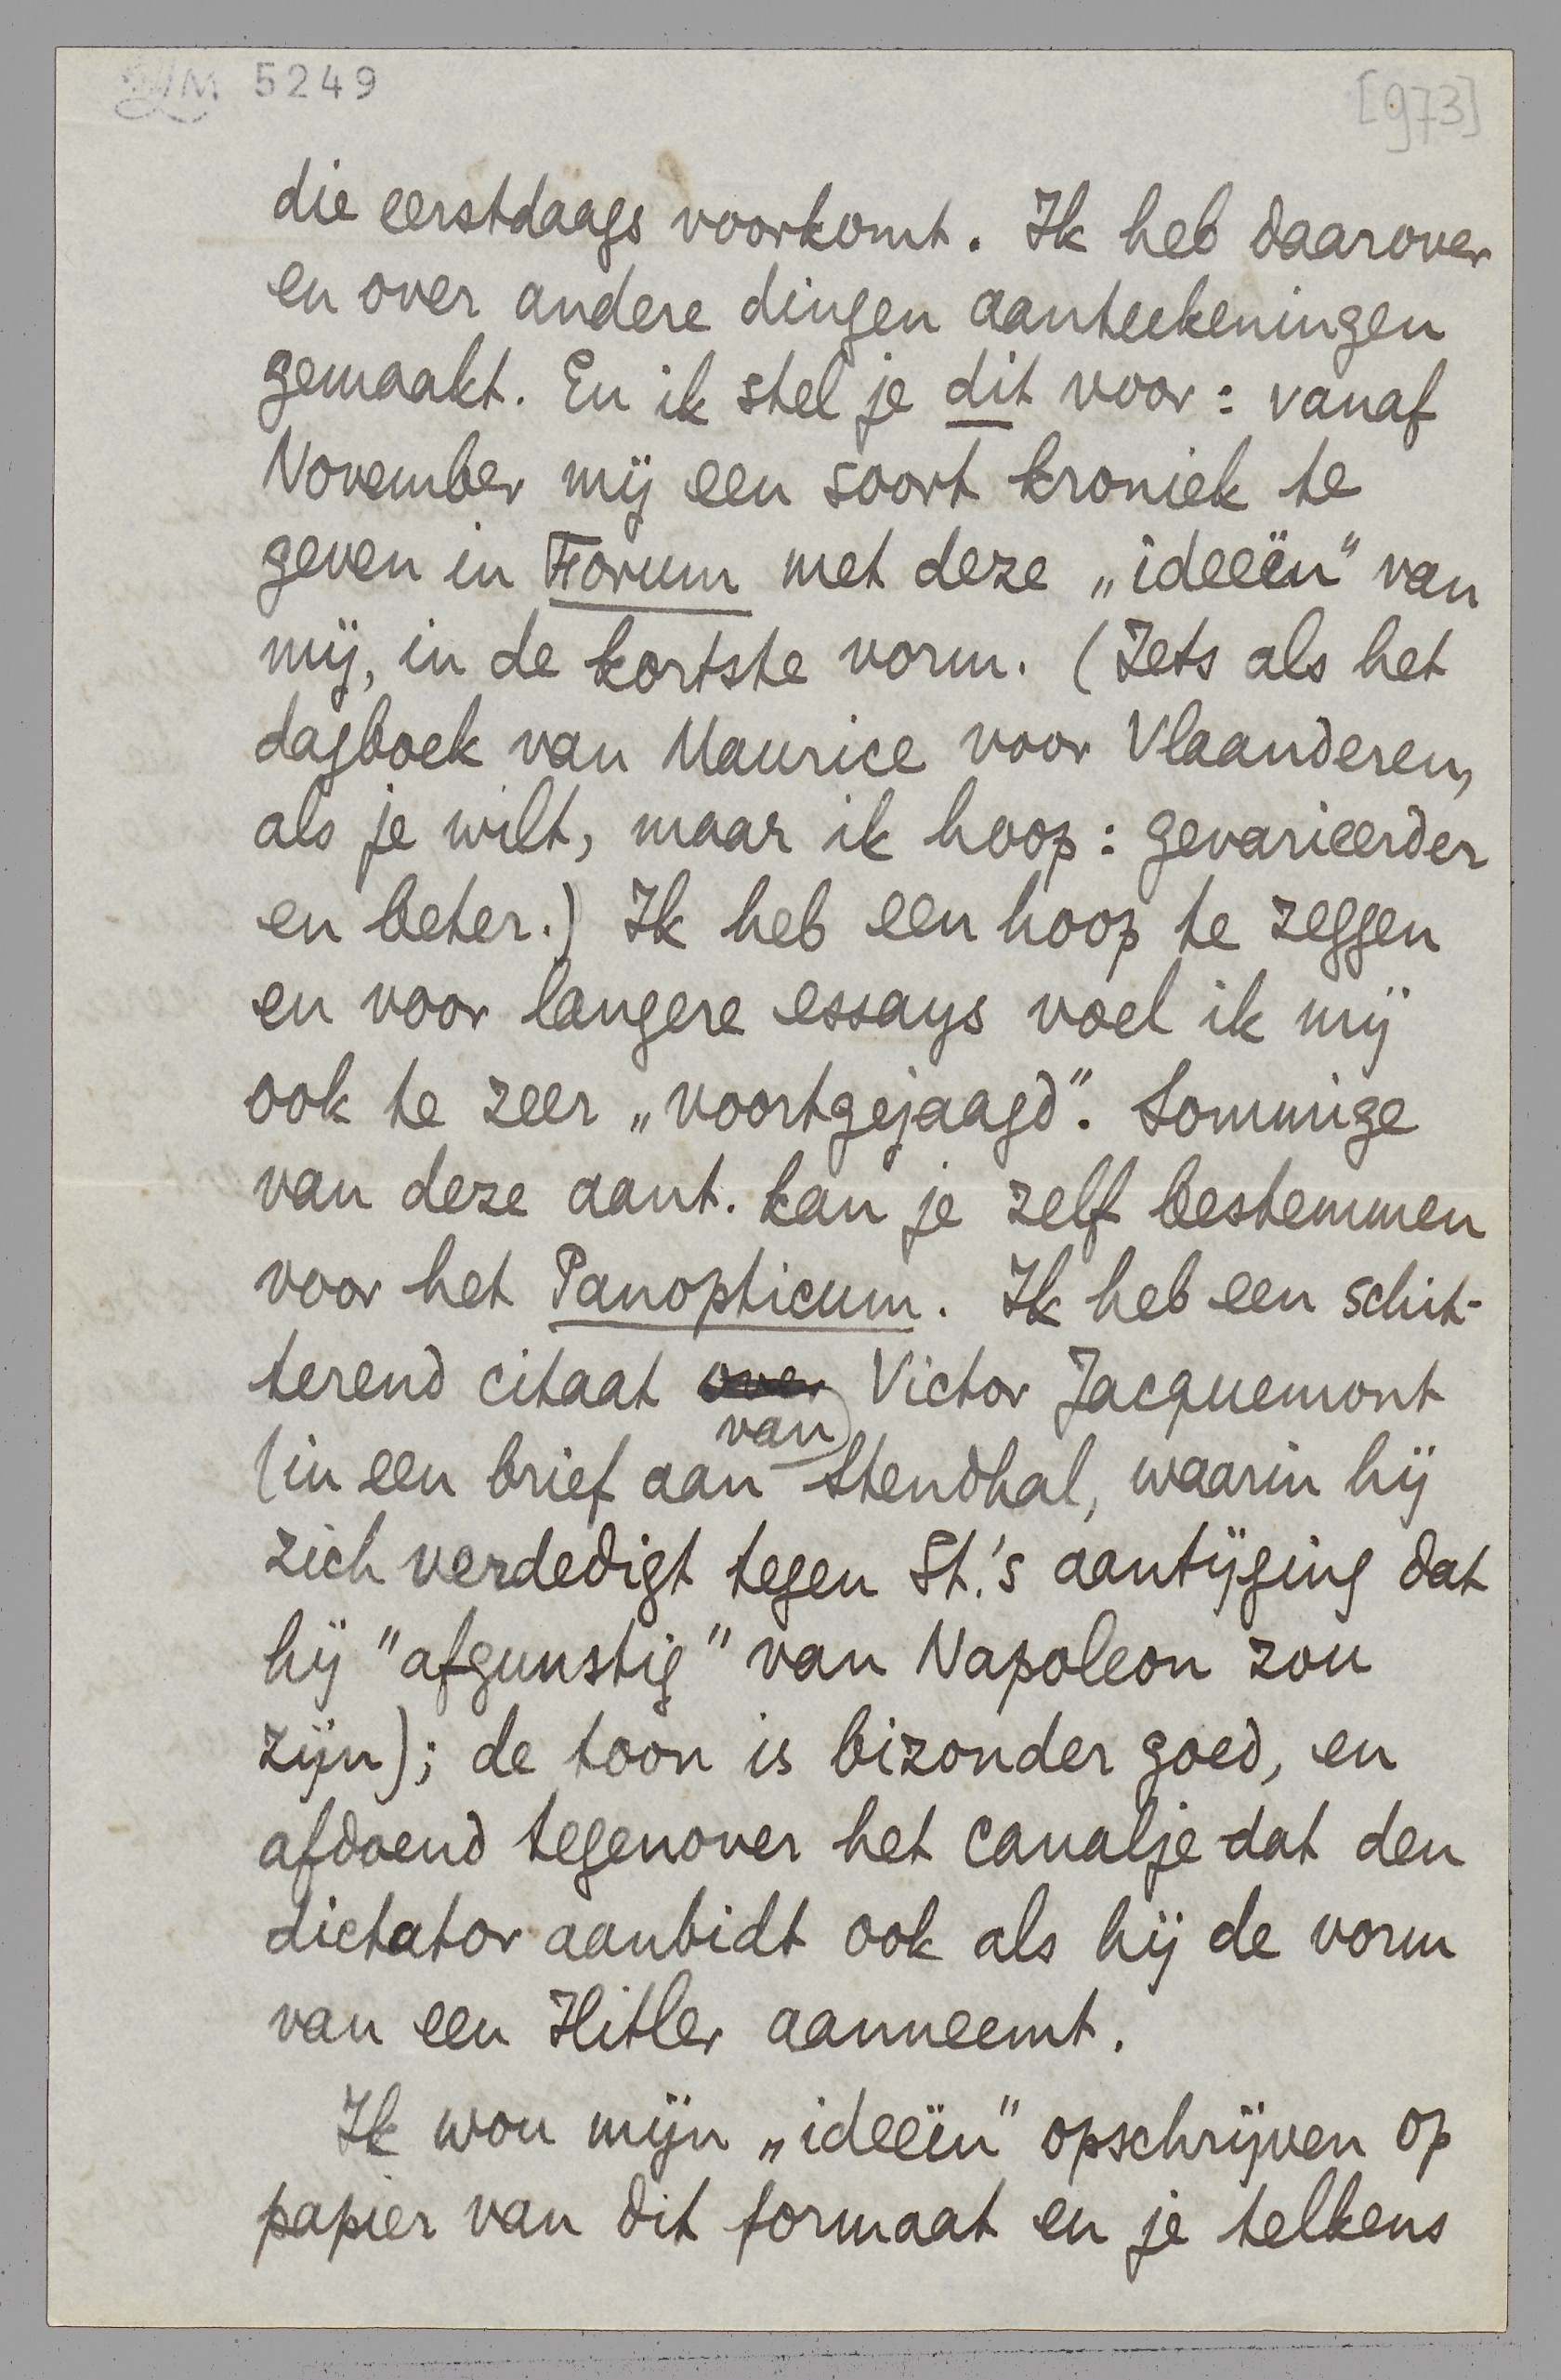 5249
[973]
die eerstdaags voorkomt. Ik heb daarover
en over andere dingen aanteekeningen
gemaakt. En ik stel je dit voor: vanaf
November mij een soort kroniek te
geven in Forum met deze „ideeën" van
mij, in de kortste vorm. (Iets als het
dagboek van Maurice voor Vlaanderen,
als je wilt, maar ik hoop: gevarieerder
en beter.) Ik heb een hoop te zeggen
en voor langere essays voel ik mij
ook te zeer „voortgejaagd". Sommige
van deze aant. kan je zelf bestemmen
voor het Panopticum. Ik heb een schit-
terend citaat over van Victor Jacquemont
(in een brief aan Stendhal, waarin hij
zich verdedigt tegen St.'s aantijging dat
hij "afgunstig" van Napoleon zou
zijn); de toon is bizonder goed, en
afdoend tegenover het canalje dat den
dictator aanbidt ook als hij de vorm
van een Hitler aanneemt.
Ik wou mijn „ideeën" opschrijven op
papier van dit formaat en je telkens